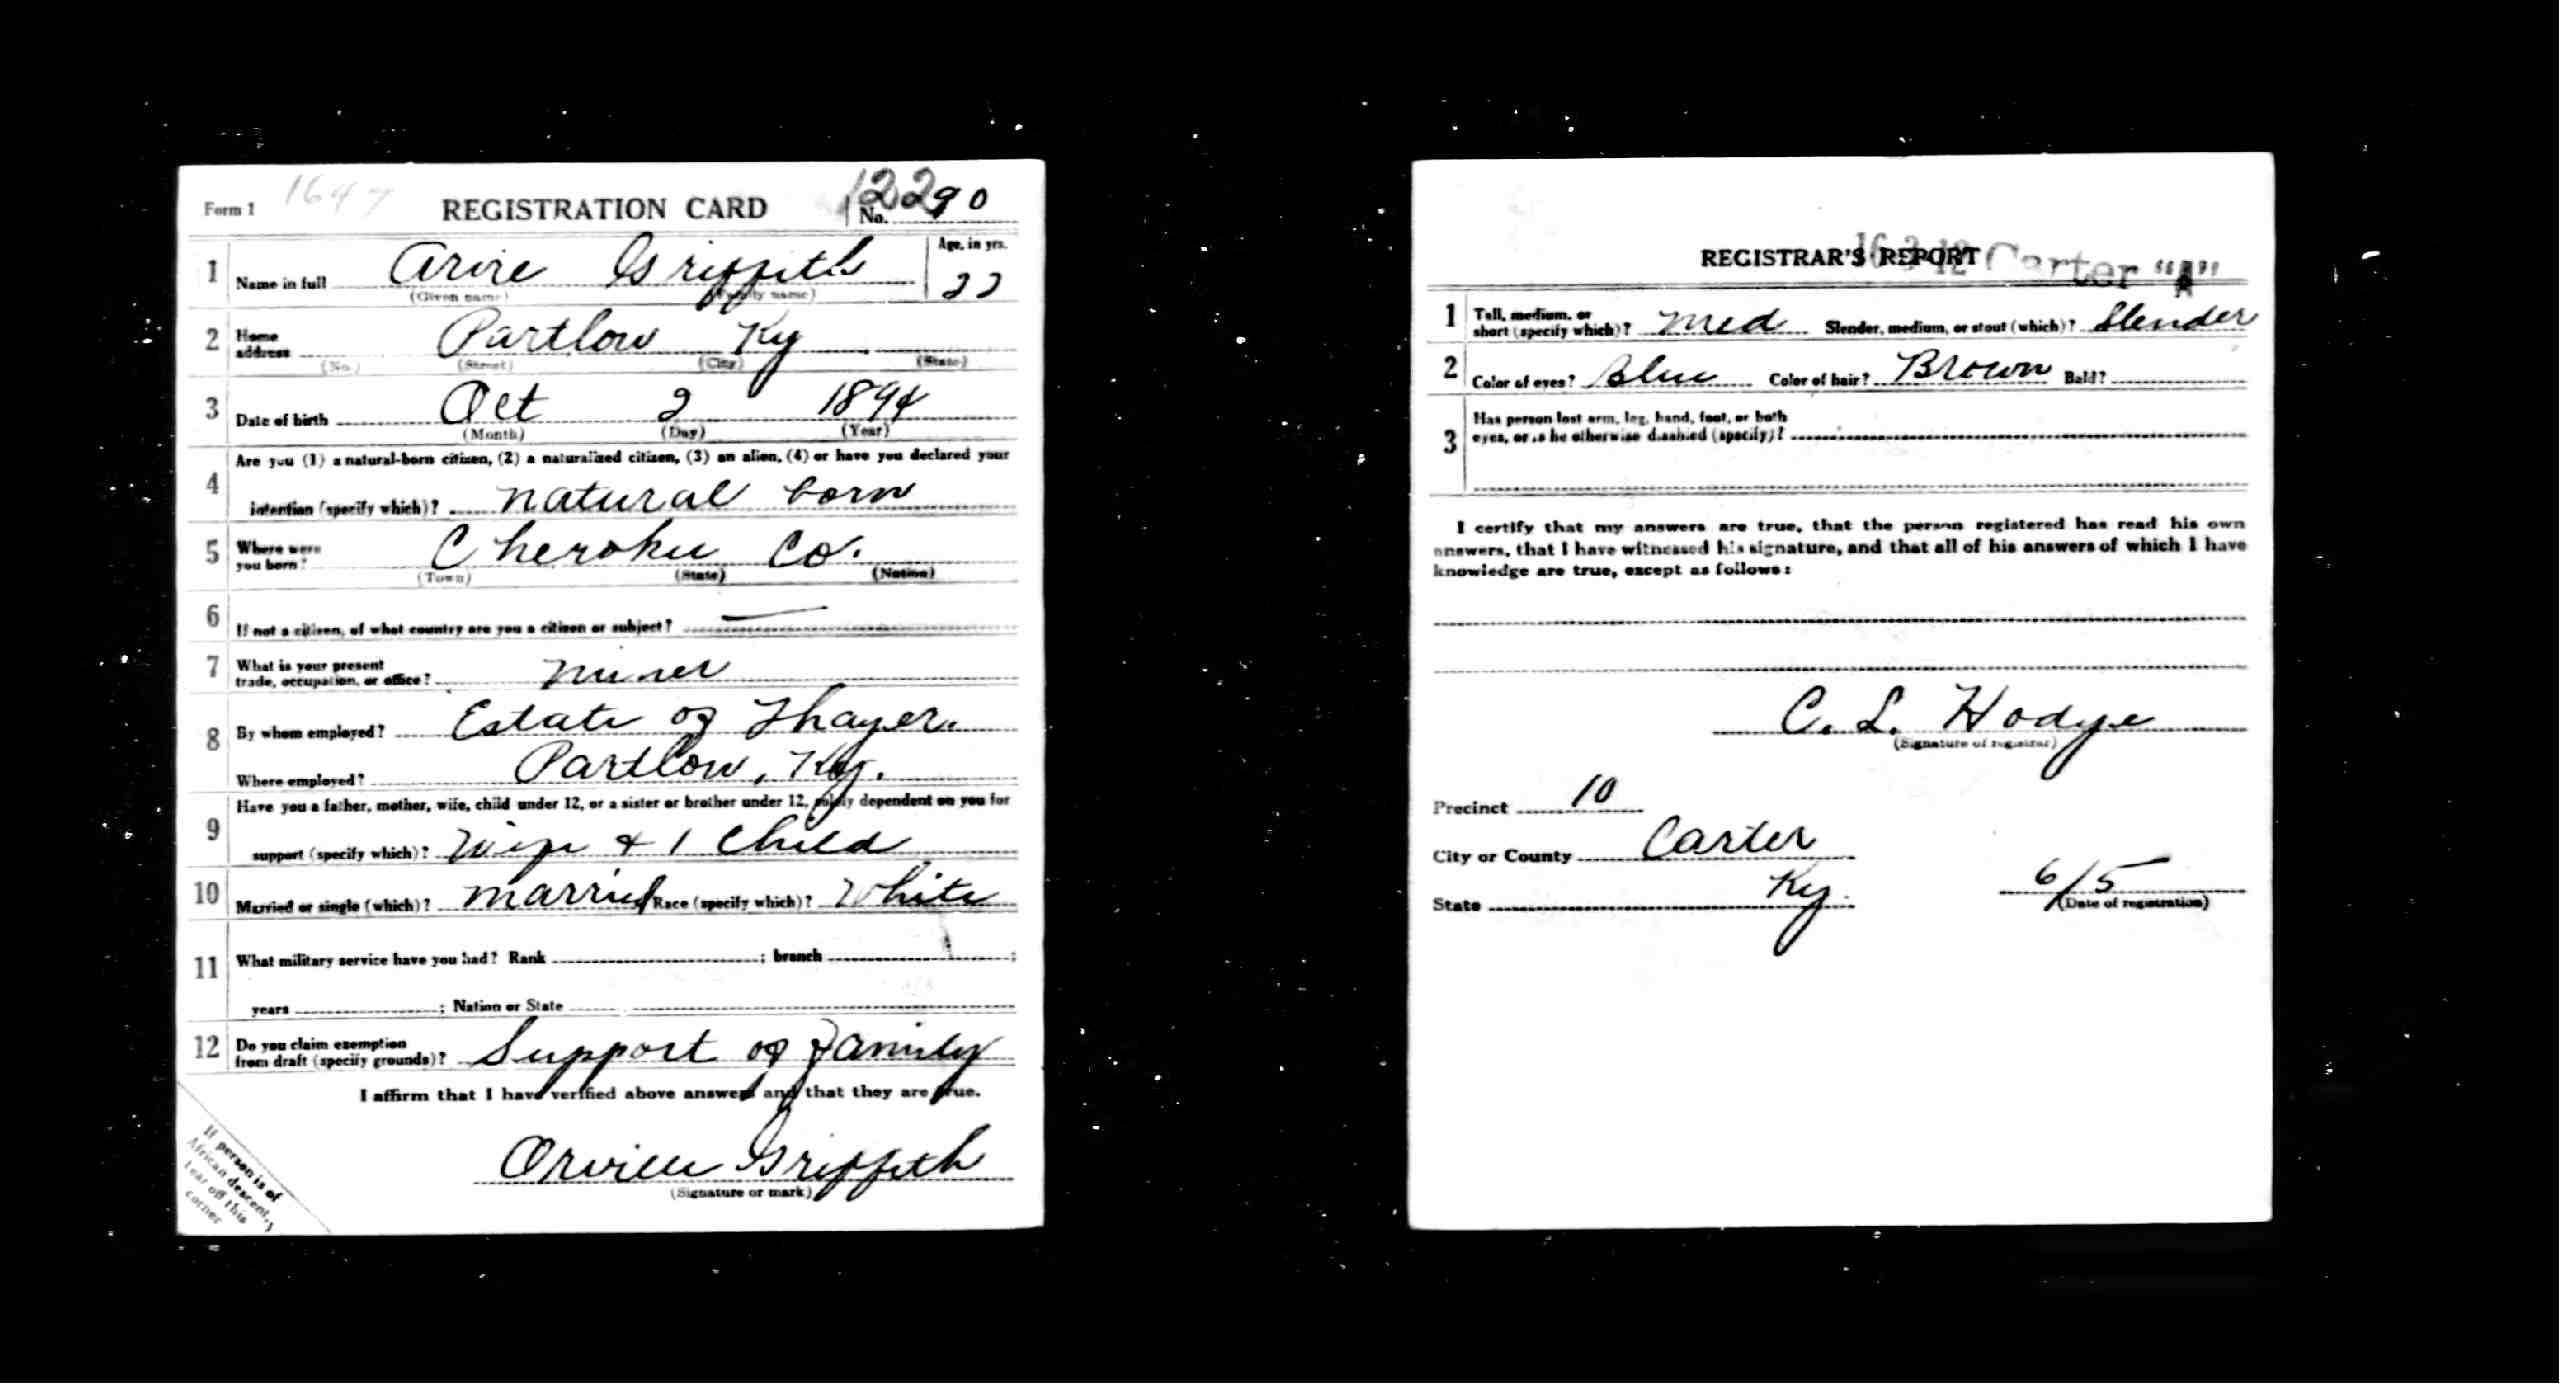 Form 1 1647 REGISTRATION CARD No. 12290
1 Name in full Arvie Griffith Age, in yrs. 22
(Given name) (Family name)
2 Home address Partlow Ky
(No.) (Street) (City) (State)
3 Date of birth Oct 2 1894
(Month) (Day) (Year)
4 Are you (1) a natural-born citizen, (2) a naturalized citizen, (3) an alien, (4) or have you declared your
intention (specify which)? natural born
5 Where were you born? Cherokee Co.
(Town) (State) (Nation)
6 If not a citizen, of what country are you a citizen or subject? —
7 What is your present trade, occupation, or office? Miner
8 By whom employed? Estate of Thayer
Where employed? Partlow, Ky.
9 Have you a father, mother, wife, child under 12, or a sister or brother under 12, solely dependent on you for
support (specify which)? Wife + 1 Child
10 Married or single (which)? married Race (specify which)? White
11 What military service have you had? Rank ; branch ;
years ; Nation or State
12 Do you claim exemption from draft (specify grounds)? Support of Family
I affirm that I have verified above answers and that they are true.
Orville Griffith
(Signature or mark)
If person is of
African descent,
tear off this
corner
REGISTRAR'S REPORT 16-3-12 Carter "A"
1 Tall, medium, or short (specify which)? Med Slender, medium, or stout (which)? Slender
2 Color of eyes? Blue Color of hair? Brown Bald?
3 Has person lost arm, leg, hand, foot, or both
eyes, or is he otherwise disabled (specify)?
I certify that my answers are true, that the person registered has read his own
answers, that I have witnessed his signature, and that all of his answers of which I have
knowledge are true, except as follows:
C. L. Hodge
(Signature of registrar)
Precinct 10
City or County Carter
State Ky. 6/5
(Date of registration)